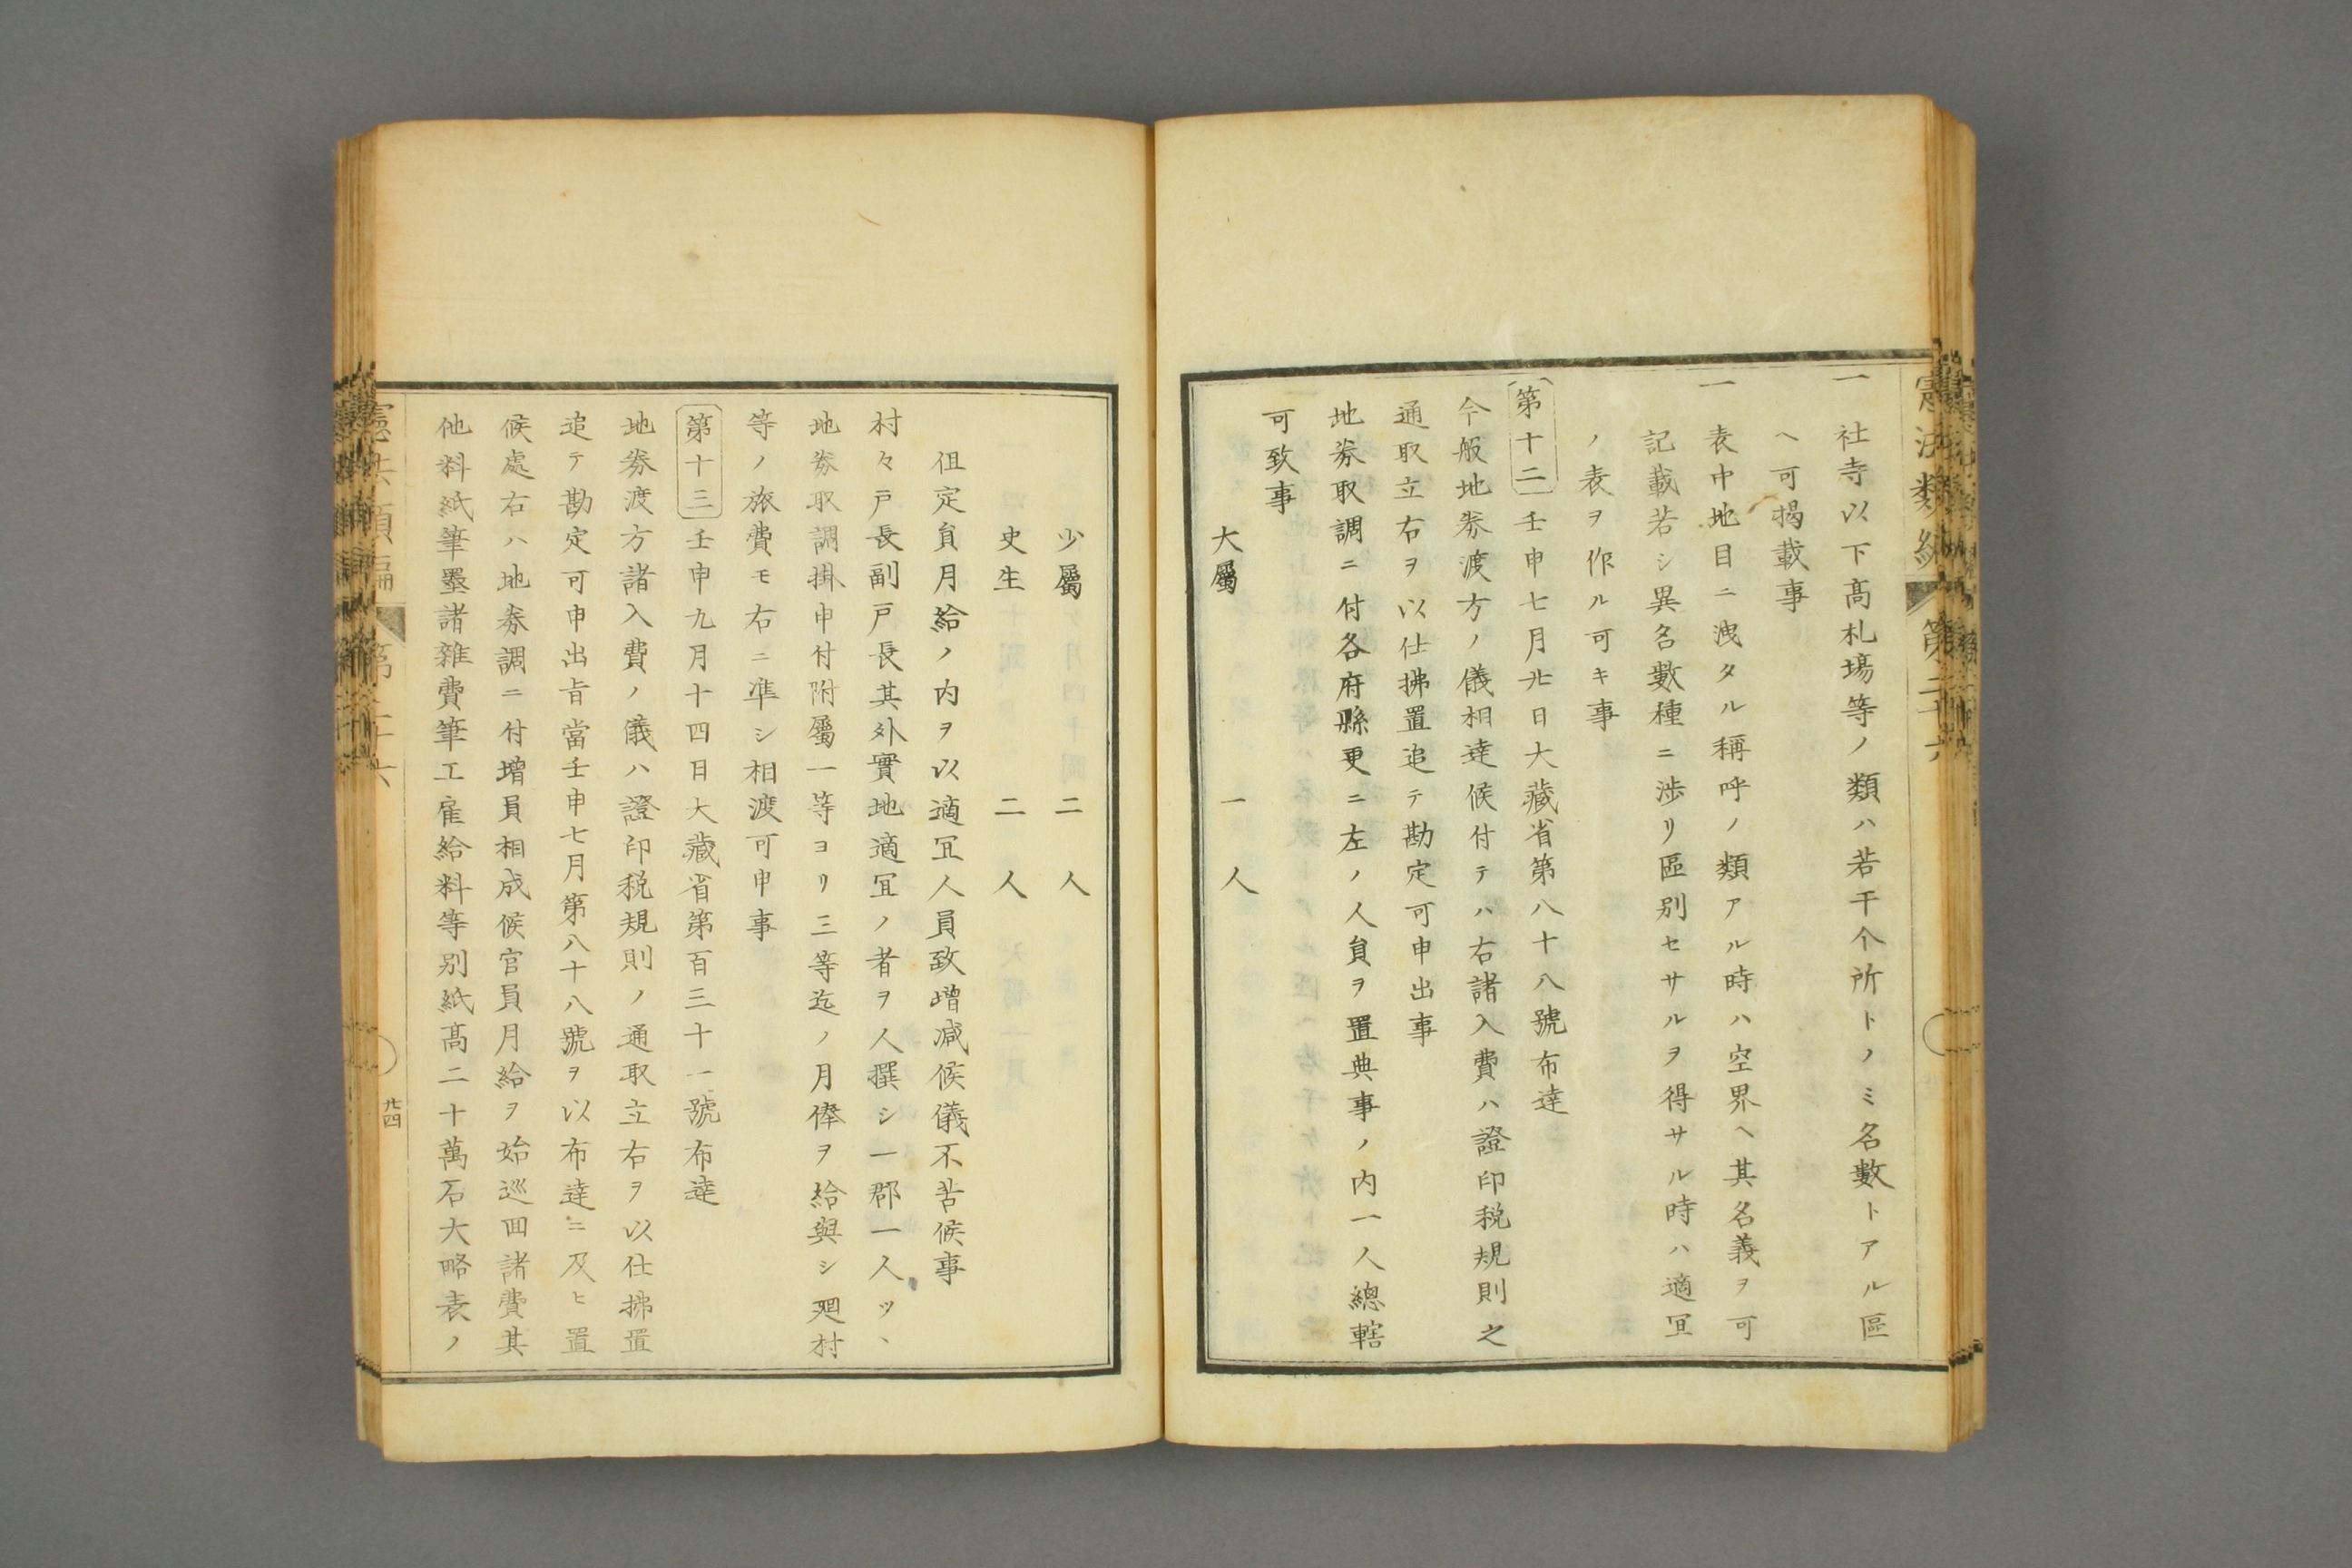 憲法類編 第二十六
一 社寺以下髙札塲等ノ類ハ若干个所トノミ名數トアル區
ヘ可揭載事
一 表中地目ニ洩タル稱呼ノ類アル時ハ空界ヘ其名義ヲ可
記載若シ異名數種ニ渉リ區別セサルヲ得サル時ハ適冝
ノ表ヲ作ル可キ事
第十二 壬申七月廿日大藏省第八十八號布達
今般地劵渡方ノ儀相達候付テハ右諸入費ハ證印税規則之
通取立右ヲ以仕拂置追テ勘定可申出事
地劵取調ニ付各府縣更ニ左ノ人貟ヲ置典事ノ内一人總轄
可致事
大屬 一人
少屬 二人
史生 二人
伹定貟月給ノ内ヲ以適冝人員致增減候儀不苦候事
村々戸長副戸長其外實地適冝ノ者ヲ人撰シ一郡一人ツヽ
地劵取調掛申付附屬一等ヨリ三等迄ノ月俸ヲ給與シ廻村
等ノ旅費モ右ニ準シ相渡可申事
第十三 壬申九月十四日大藏省第百三十一號布達
地劵渡方諸入費ノ儀ハ證印税規則ノ通取立右ヲ以仕拂置
追テ勘定可申出旨當壬申七月第八十八號ヲ以布達ニ及ヒ置
候處右ハ地劵調ニ付增員相成候官員月給ヲ始巡回諸費其
他料紙筆墨諸雜費筆工雇給料等別紙髙二十萬石大略表ノ
憲法類編 第二十六
廿四